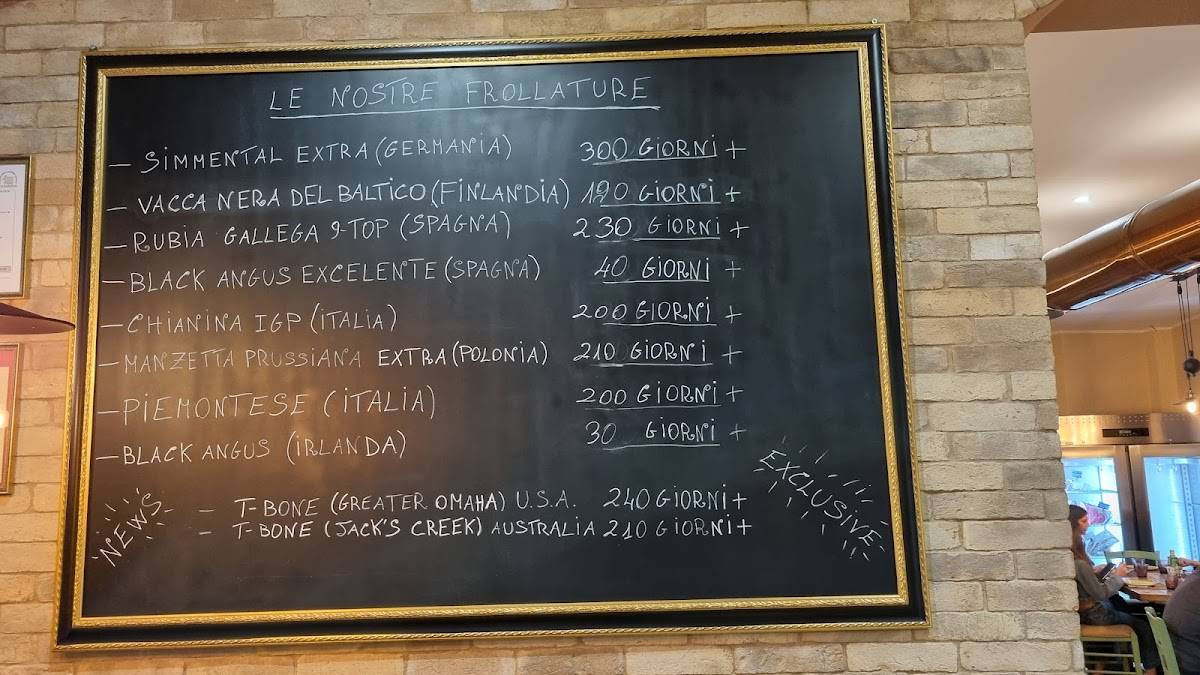 LE NOSTRE FROLLATURE
- SIMMENTAL EXTRA (GERMANIA) 300 GIORNI +
- VACCA NERA DEL BALTICO (FINLANDIA) 190 GIORNI +
- RUBIA GALLEGA 9-TOP (SPAGNA) 230 GIORNI +
- BLACK ANGUS EXCELENTE (SPAGNA) 40 GIORNI +
- CHIANINA IGP (ITALIA) 200 GIORNI +
- MANZETTA PRUSSIANA EXTRA (POLONIA) 210 GIORNI +
- PIEMONTESE (ITALIA) 200 GIORNI +
- BLACK ANGUS (IRLANDA) 30 GIORNI +
NEWS
- T-BONE (GREATER OMAHA) U.S.A. 240 GIORNI +
- T-BONE (JACK'S CREEK) AUSTRALIA 210 GIORNI +
EXCLUSIVE